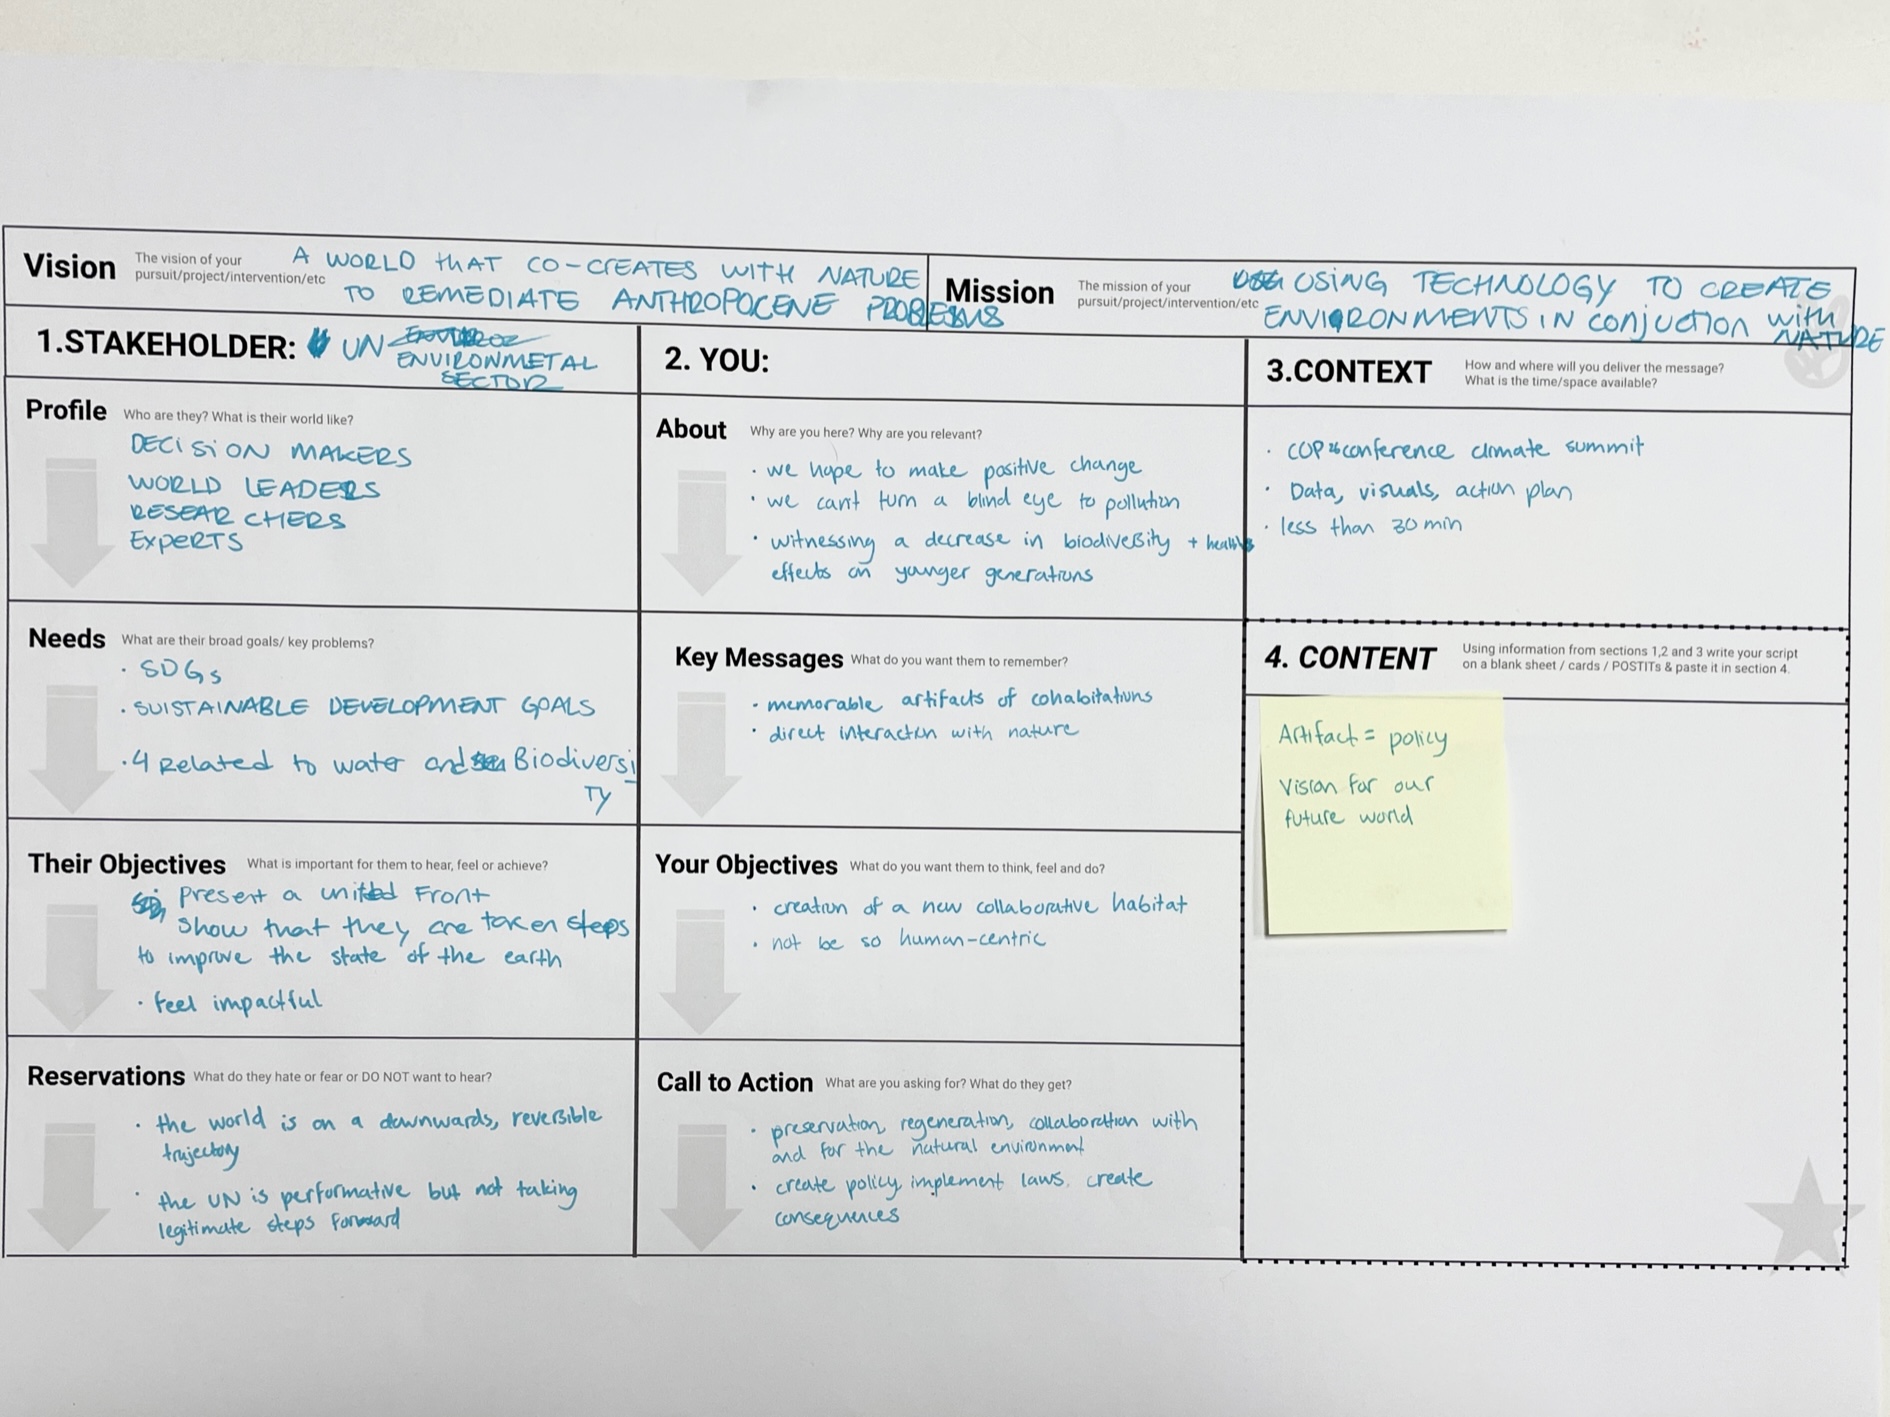 Vision
The vision of your
pursuit/project/intervention/etc
A WORLD THAT CO-CREATES WITH NATURE
TO REMEDIATE ANTHROPOCENE PROBLEMS
Mission
The mission of your
pursuit/project/intervention/etc
USING TECHNOLOGY TO CREATE
ENVIRONMENTS IN conjuction with
NATURE
1.STAKEHOLDER: UN
ENVIRONMETAL
SECTOR
Profile Who are they? What is their world like?
DECISION MAKERS
WORLD LEADERS
RESEARCHERS
EXPERTS
Needs What are their broad goals/ key problems?
· SDGs
· SUISTAINABLE DEVELOPMENT GOALS
· 4 Related to water and Biodiversi
TY
Their Objectives What is important for them to hear, feel or achieve?
Present a united Front
Show that they are taken steps
to improve the state of the earth
· Feel impactful
Reservations What do they hate or fear or DO NOT want to hear?
· the world is on a downwards, reversible
trajectory
· the UN is performative but not taking
legitimate steps forward
2. YOU:
About Why are you here? Why are you relevant?
· we hope to make positive change
· we can't turn a blind eye to pollution
· witnessing a decrease in biodiversity + health
effects on younger generations
Key Messages What do you want them to remember?
· memorable artifacts of cohabitations
· direct interaction with nature
Your Objectives What do you want them to think, feel and do?
· creation of a new collaborative habitat
· not be so human-centric
Call to Action What are you asking for? What do they get?
· preservation, regeneration, collaboration with
and for the natural environment
· create policy, implement laws, create
consequences
3.CONTEXT
How and where will you deliver the message?
What is the time/space available?
· COP conference climate summit
· Data, visuals, action plan
· less than 30 min
4. CONTENT
Using information from sections 1,2 and 3 write your script
on a blank sheet / cards / POSTITs & paste it in section 4.
Artifact = policy
Vision for our
future world